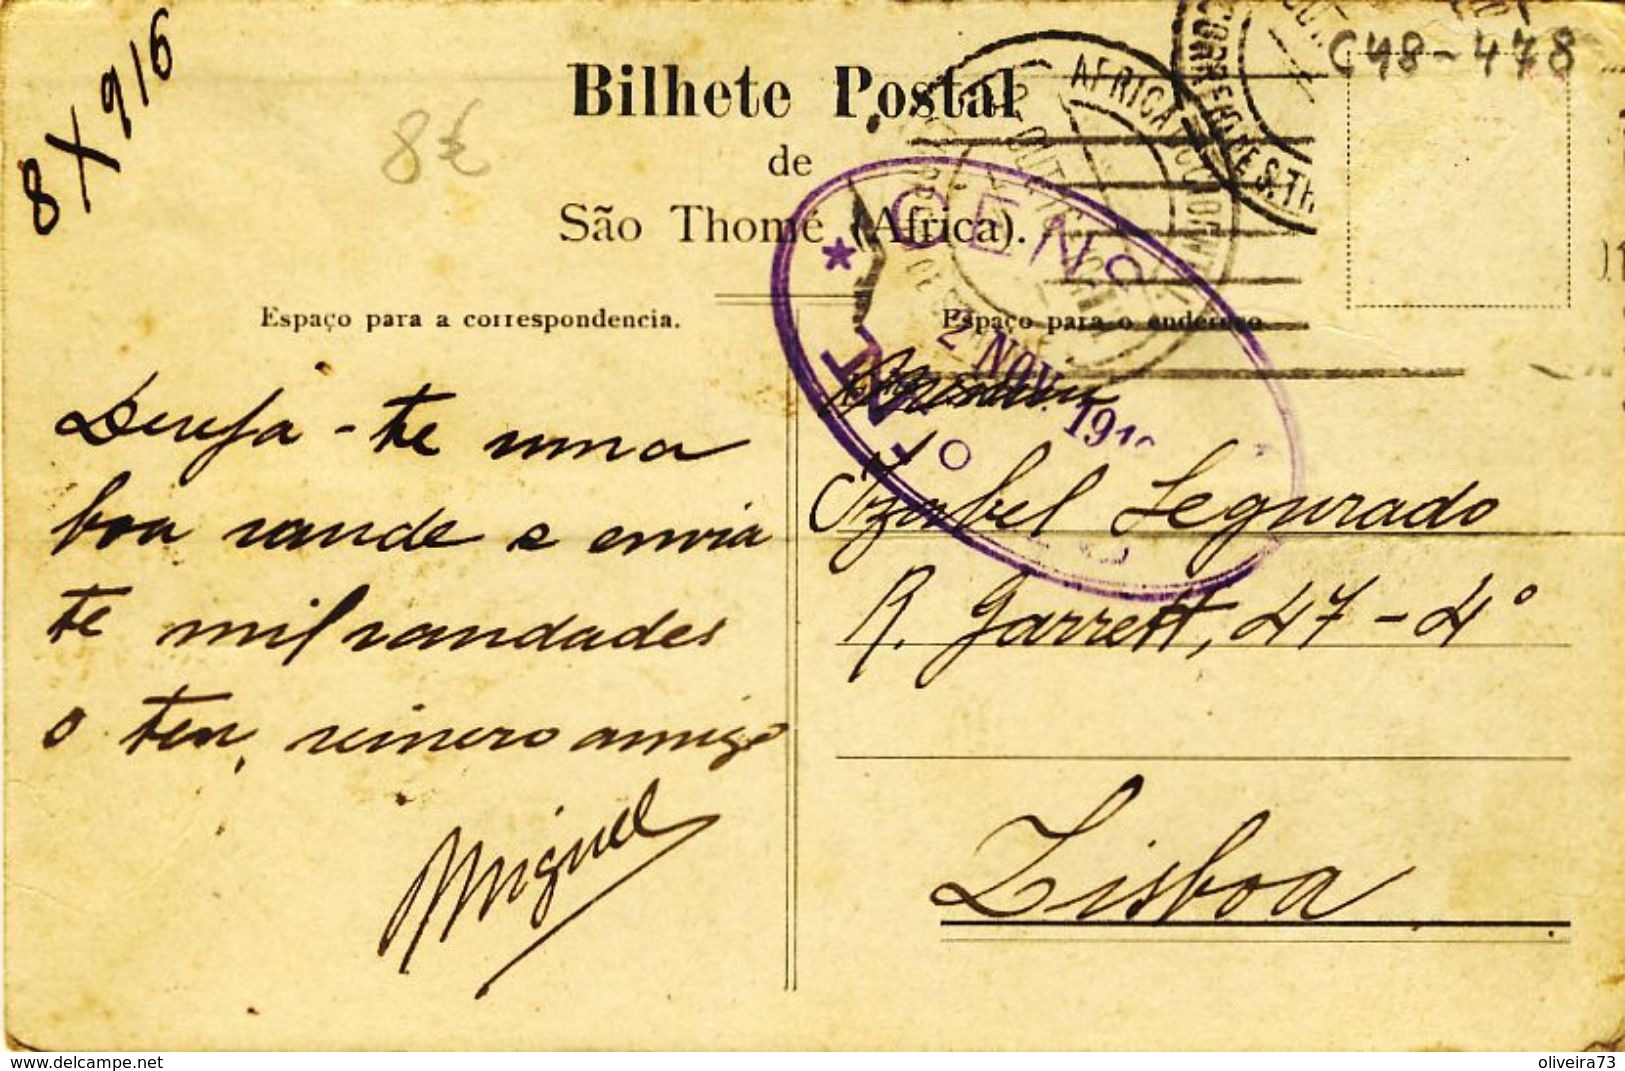 8 X 916
8€
C48-478
Bilhete Postal
de
São Thomé (Africa).
Espaço para a correspondencia.
Deseja-te uma
boa saude e envia
te mil saudades
o teu, sincero amigo
Miguel
Espaço para o endereço
Izabel Segurado
R. Garrett, 47-4º
Lisboa
CENS
2 NOV. 191
AFRICA OCCIDENTAL
delcampe.net
oliveira73